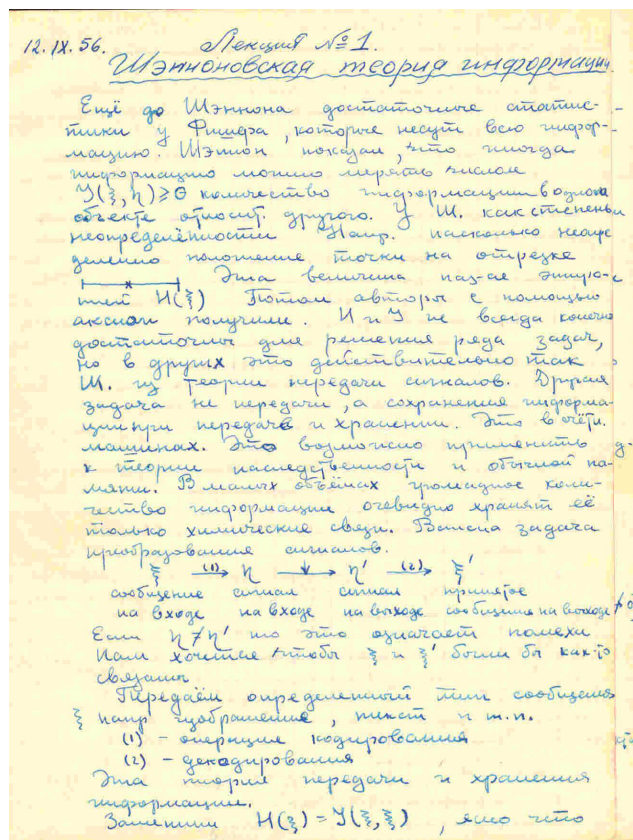 12.IX.56. Лекция №1.
Шэнноновская теория информации.
Ещё до Шэннона достаточные статис-
тики у Фишера, которые несут всю инфор-
мацию. Шэннон показал, что иногда
информацию можно мерять числом
J(ξ,η)⩾0 количество информации в одном
объекте относит. другого. У Ш. как степень
неопределённости Напр. насколько неопре
делено положение точки на отрезке
Эта величина наз-ся энтро-
пией H(ξ) Потом авторы с помощью
аксиом получили. H и J не всегда конечно
достаточны для решения ряда задач,
но в других это действительно так
Ш. из теории передачи сигналов. Другая
задача не передачи, а сохранения информа-
ции при передаче и хранении. Это в счётн.
машинах. Это возможно применить
к теории наследственности и обычной па-
мяти. В малых объёмах громадное коли-
чество информации очевидно хранят её
только химические связи. Важна задача
преобразования сигналов.
ξ (1)→ η → η' (2)→ ξ'
сообщение сигнал сигнал принятое
на входе на входе на выходе сообщения на выходе
Если η≠η' то это означает помехи
Нам хочется чтобы ξ и ξ' были бы как-то
связаны
Передаём определенный тип сообщения
ξ напр изображение, текст и т.п.
(1) - операция кодирования
(2) - декодирования
Эта теория передачи и хранения
информации.
Заметим H(ξ)=J(ξ,ξ), ясно что